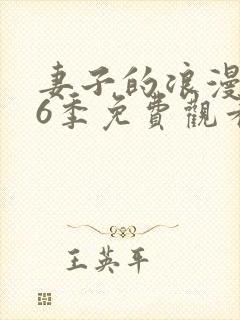 妻子的浪漫
6季免費觀看
王英平